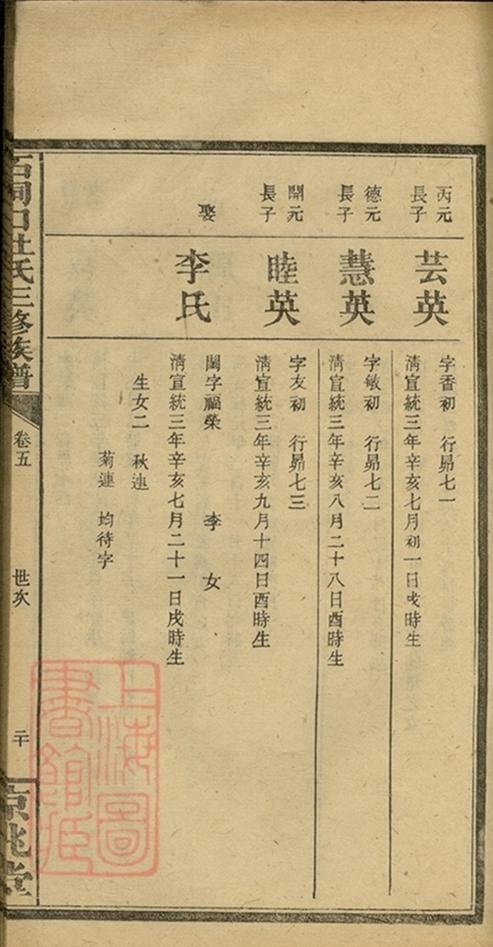 丙元
長子
芸英
字香初 行昴七一
清宣統三年辛亥七月初一日戌時生
德元
長子
慧英
字敏初 行昴七二
清宣統三年辛亥八月二十八日酉時生
開元
長子
睦英
字友初 行昴七三
清宣統三年辛亥九月十四日酉時生
娶
李氏
閨字福榮 李 女
清宣統三年辛亥七月二十一日戌時生
生女二 秋連
菊連 均待字
杜氏三修族譜
卷五
世次
二十
京兆堂
上海圖
書館